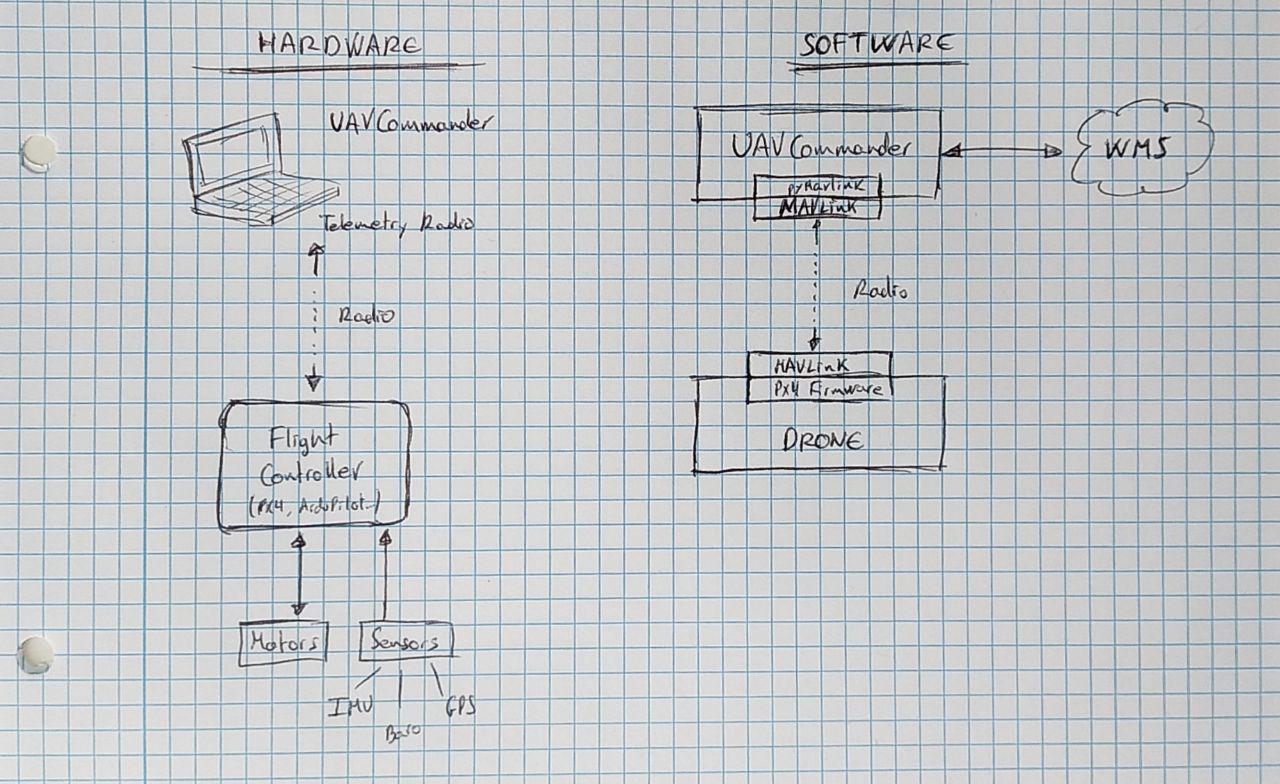 HARDWARE
UAVCommander
Telemetry Radio
Radio
Flight
Controller
(PX4, ArduPilot..)
Motors
Sensors
IMU
Baro
GPS
SOFTWARE
UAVCommander
WMS
pyMavlink
MAVLink
Radio
MAVLink
Px4 Firmware
DRONE